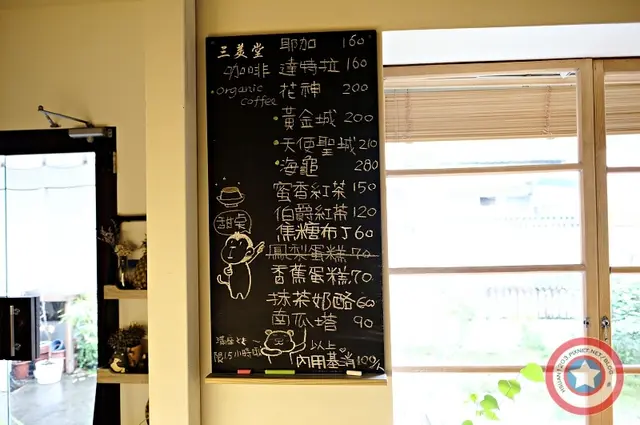 三美堂 耶加 160
咖啡 達特拉 160
organic coffee 花神 200
黃金城 200
天使聖城 210
海龜 280
蜜香紅茶 150
伯爵紅茶 120
甜桌 焦糖布丁 60
鳳梨蛋糕 70
香蕉蛋糕 70
抹茶奶酪 60
南瓜塔 90
滿座時 以上
限1.5小時 內用基消100/人